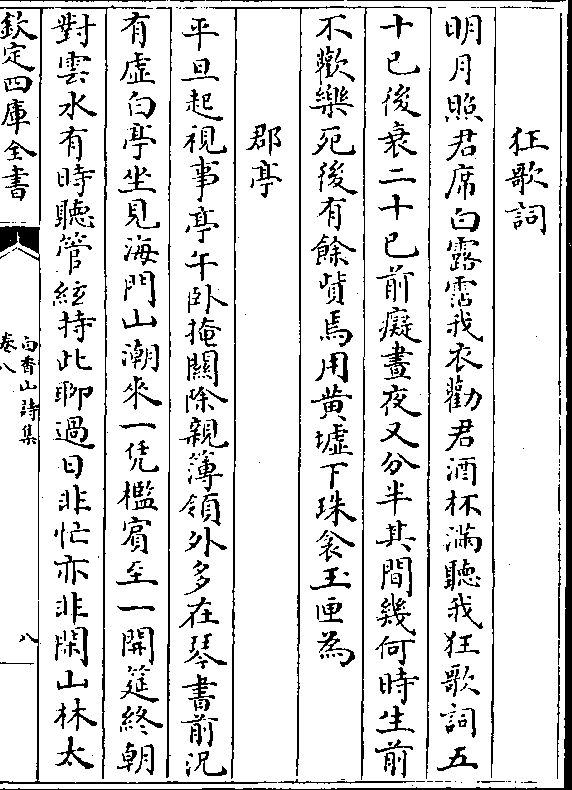 狂歌詞
明月照君席白露霑我衣勸君酒杯滿聽我狂歌詞五
十已後衰二十已前癡晝夜又分半其間幾何時生前
不歡樂死後有餘貲焉用黄墟下珠衾玉匣為
郡亭
平旦起視事亭午卧掩關除親簿領外多在琴書前況
有虚白亭坐見海門山潮來一凭檻賓至一開筵終朝
對雲水有時聽管絃持此聊過日非忙亦非閑山林太
欽定四庫全書
白香山詩集
卷八
八